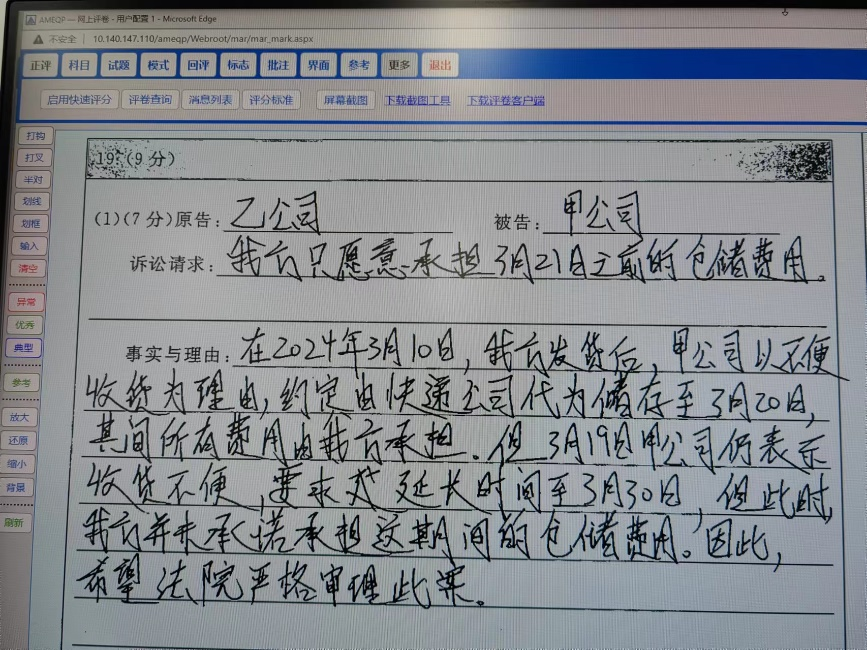 AMEQP — 网上评卷 - 用户配置 1 - Microsoft Edge
不安全 | 10.140.147.110/ameqp/Webroot/mar/mar_mark.aspx
正评 科目 试题 模式 回评 标志 批注 界面 参考 更多 退出
启用快速评分 评卷查询 消息列表 评分标准 屏幕截图 下载截图工具 下载评卷客户端
打钩
打叉
半对
划线
划框
输入
清空
异常
优秀
典型
参考
放大
还原
缩小
背景
刷新
19.(9 分)
(1)(7 分)原告:乙公司 被告:甲公司
诉讼请求:我方只愿意承担3月21日之前的仓储费用。
事实与理由:在2024年3月10日,我方发货后,甲公司以不便
收货为理由,约定由快递公司代为储存至3月20日,
其间所有费用由我方承担。但3月19日甲公司仍表示
收货不便,要求 延长时间至3月30日,但此时,
我方并未承诺承担这期间的仓储费用。因此,
希望法院严格审理此案。